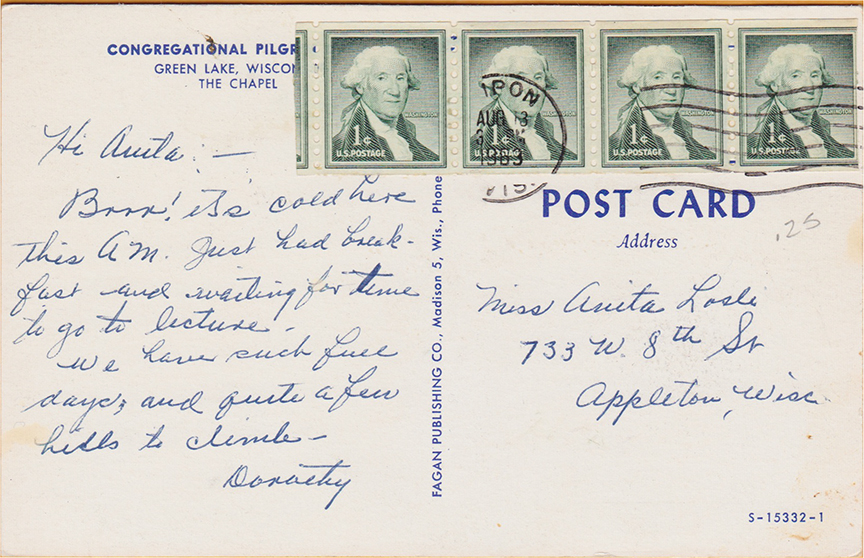 CONGREGATIONAL PILGR
GREEN LAKE, WISCON
THE CHAPEL
WASHINGTON
1¢
U.S. POSTAGE
WASHINGTON
1¢
U.S. POSTAGE
WASHINGTON
1¢
U.S. POSTAGE
WASHINGTON
1¢
U.S. POSTAGE
RIPON
AUG 13
1963
WIS.
Hi Anita: —
Brrr! it's cold here
this A M. Just had break-
fast and waiting for time
to go to lecture.
We have such full
days, and quite a few
hills to climb —
Dorothy
FAGAN PUBLISHING CO., Madison 5, Wis., Phone
POST CARD
Address
.25
Miss Anita
733 W. 8th St
Appleton, Wisc.
S-15332-1